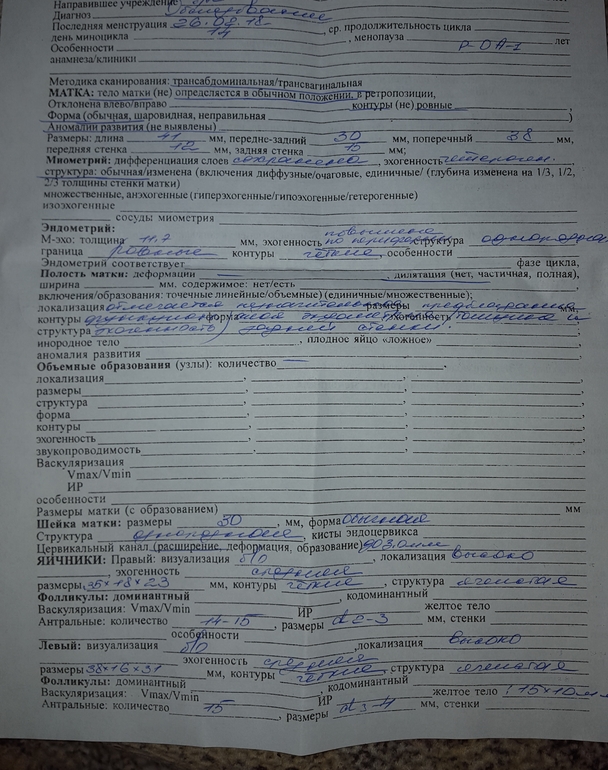 Направившее учреждение
Диагноз
Последняя менструация 26.02.18 , ср. продолжительность цикла
день миноцикла 14 , менопауза лет
Особенности Р-0А-1
анамнеза/клиники
Методика сканирования: трансабдоминальная/трансвагинальная
МАТКА: тело матки (не) определяется в обычном положении, в ретропозиции,
Отклонена влево/вправо контуры (не) ровные
Форма (обычная, шаровидная, неправильная )
Аномалии развития (не выявлены)
Размеры: длина 41 мм, передне-задний 30 мм, поперечный 38 мм,
передняя стенка 12 мм, задняя стенка 15 мм;
Миометрий: дифференциация слоев сохранена , эхогенность гетероген.
структура: обычная/изменена (включения диффузные/очаговые, единичные/ (глубина изменена на 1/3, 1/2,
2/3 толщины стенки матки)
множественные, анэхогенные (гиперэхогенные/гипоэхогенные/гетерогенные)
изоэхогенные
сосуды миометрия
Эндометрий: повышена
М-эхо: толщина 11.7 мм, эхогенность по периферии структура однородная
граница ровные контуры четкие , особенности
Эндометрий соответствует фазе цикла,
Полость матки: деформации — , дилятация (нет, частичная, полная),
ширина мм. содержимое: нет/есть
включения/образования: точечные линейные/объемные) (единичные/множественные);
локализация размеры мм,
контуры форма эхогенность
структура эхогенность) задней стенки.
инородное тело , плодное яйцо «ложное»
аномалия развития
Объемные образования (узлы): количество —
локализация
размеры
структура
форма
контуры
эхогенность
звукопроводимость
Васкуляризация
Vmax/Vmin
ИР
особенности
Размеры матки (с образованием) мм
Шейка матки: размеры 30 , мм, форма обычная
Структура однородная , кисты эндоцервикса
Цервикальный канал (расширение, деформация, образование) до 3,0мм
ЯИЧНИКИ: Правый: визуализация б/о , локализация высоко
эхогенность средняя
размеры 35×18×23 мм, контуры четкие , структура ячеистая
Фолликулы: доминантный , кодоминантный
Васкуляризация: Vmax/Vmin ИР желтое тело
Антральные: количество 14-15 , размеры d 2-3 мм, стенки
особенности
Левый: визуализация б/о ,локализация высоко
эхогенность средняя
размеры 38×16×31 мм, контуры четкие , структура ячеистая
Фолликулы: доминантный , кодоминантный
Васкуляризация: Vmax/Vmin ИР желтое тело (15×10мм
Антральные: количество 15 , размеры d 3-4 мм, стенки